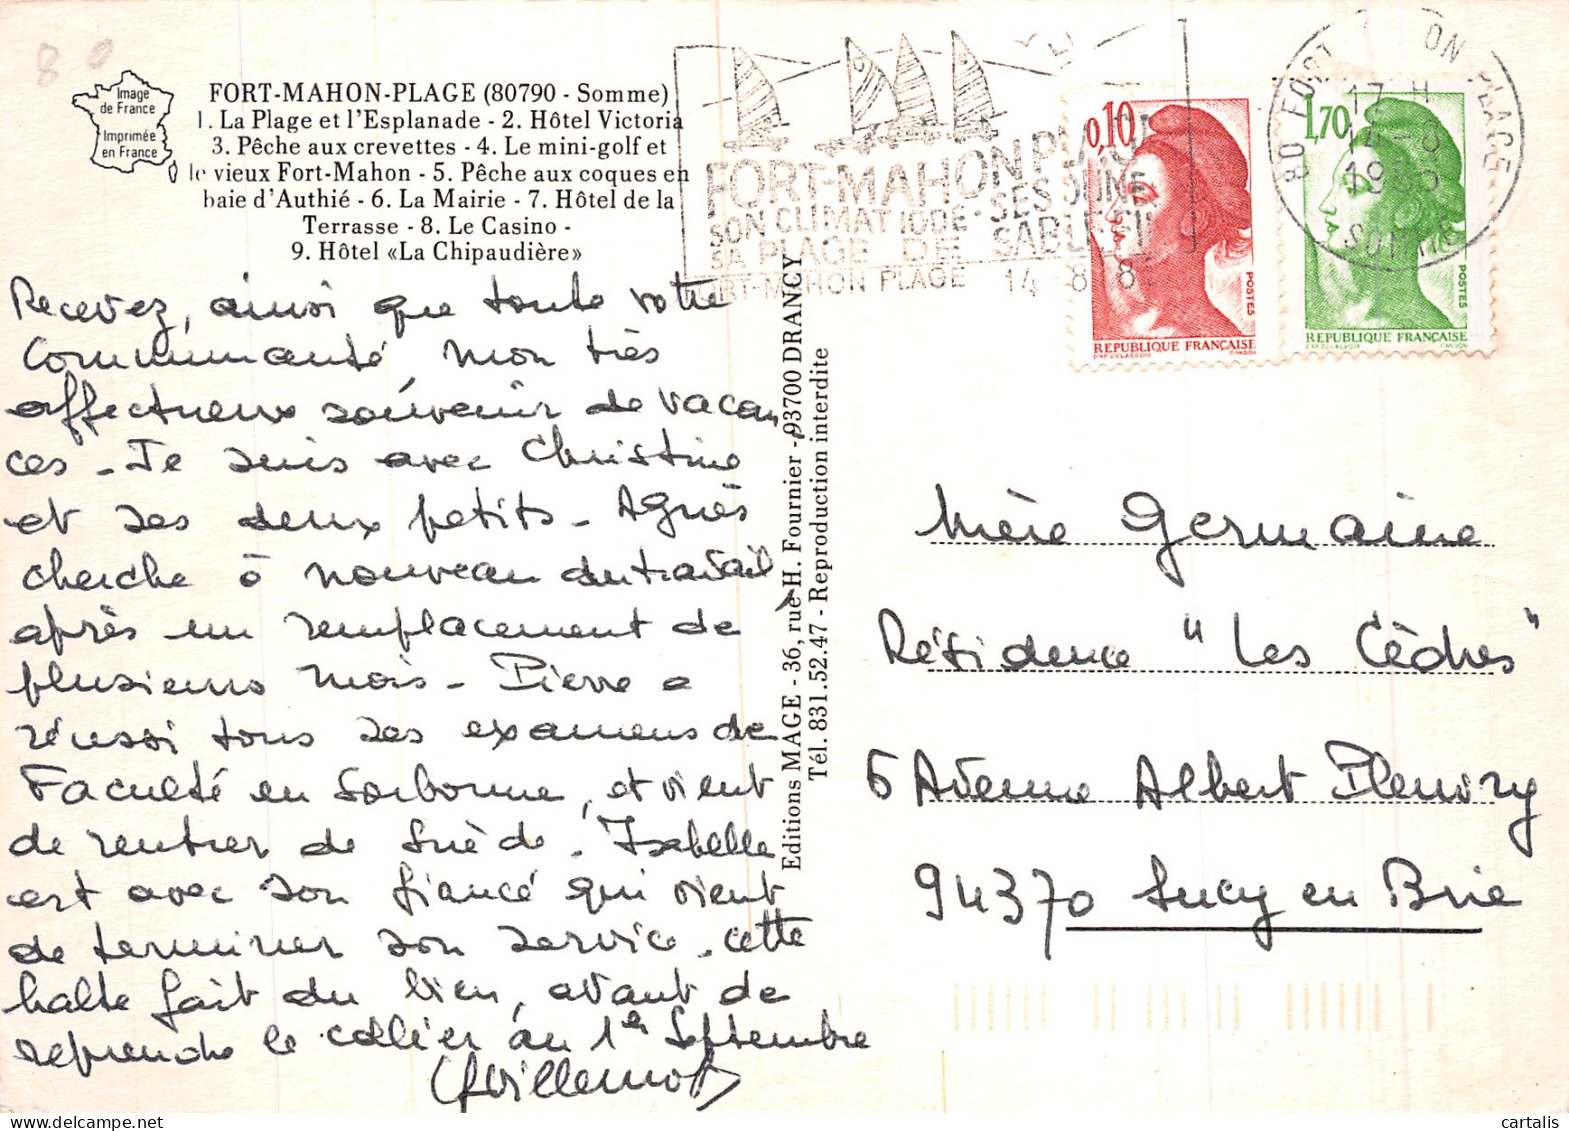 80
Image
de France
Imprimée
en France
FORT-MAHON-PLAGE (80790 - Somme)
1. La Plage et l'Esplanade - 2. Hôtel Victoria
3. Pêche aux crevettes - 4. Le mini-golf et
le vieux Fort-Mahon - 5. Pêche aux coques en
baie d'Authié - 6. La Mairie - 7. Hôtel de la
Terrasse - 8. Le Casino -
9. Hôtel «La Chipaudière»
Recevez, ainsi que toute votre
Communauté, mon très
affectueux souvenir de vacan
ces - Je suis avec Christine
et ses deux petits - Agnès
cherche à nouveau du travail
après un remplacement de
plusieurs mois - Pierre a
réussi tous ses examens de
Faculté en Sorbonne, et vient
de rentrer de Suède. Isabelle
est avec son fiancé qui vient
de terminer son service. Cette
halte fait du bien, avant de
reprendre le collier au 1er Septembre
Editions MAGE - 36, rue H. Fournier - 93700 DRANCY
Tél. 831.52.47 - Reproduction interdite
FORT-MAHON PLAGE
SON CLIMAT IODE - SES DUNES
SA PLAGE DE SABLE FIN
FORT-MAHON PLAGE 14 -8 8
80 FORT MAHON PLAGE
17 H
14-8
SOMME
0,10
POSTES
REPUBLIQUE FRANÇAISE
1,70
POSTES
REPUBLIQUE FRANÇAISE
Mère Germaine
Résidence "Les Cèdres"
6 Avenue Albert Pleuvry
94370 Sucy en Brie
cartalis